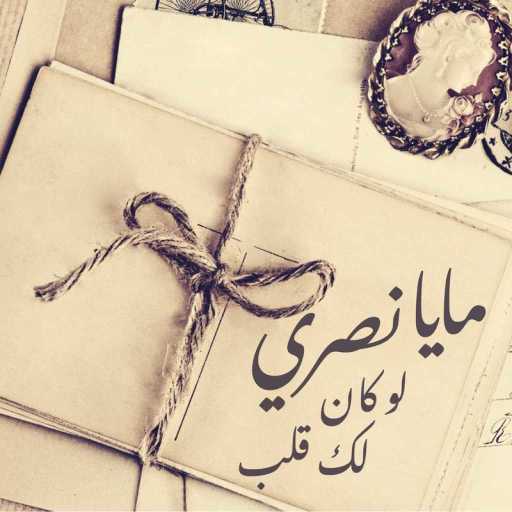 مايا نصري
لو كان
لك قلب